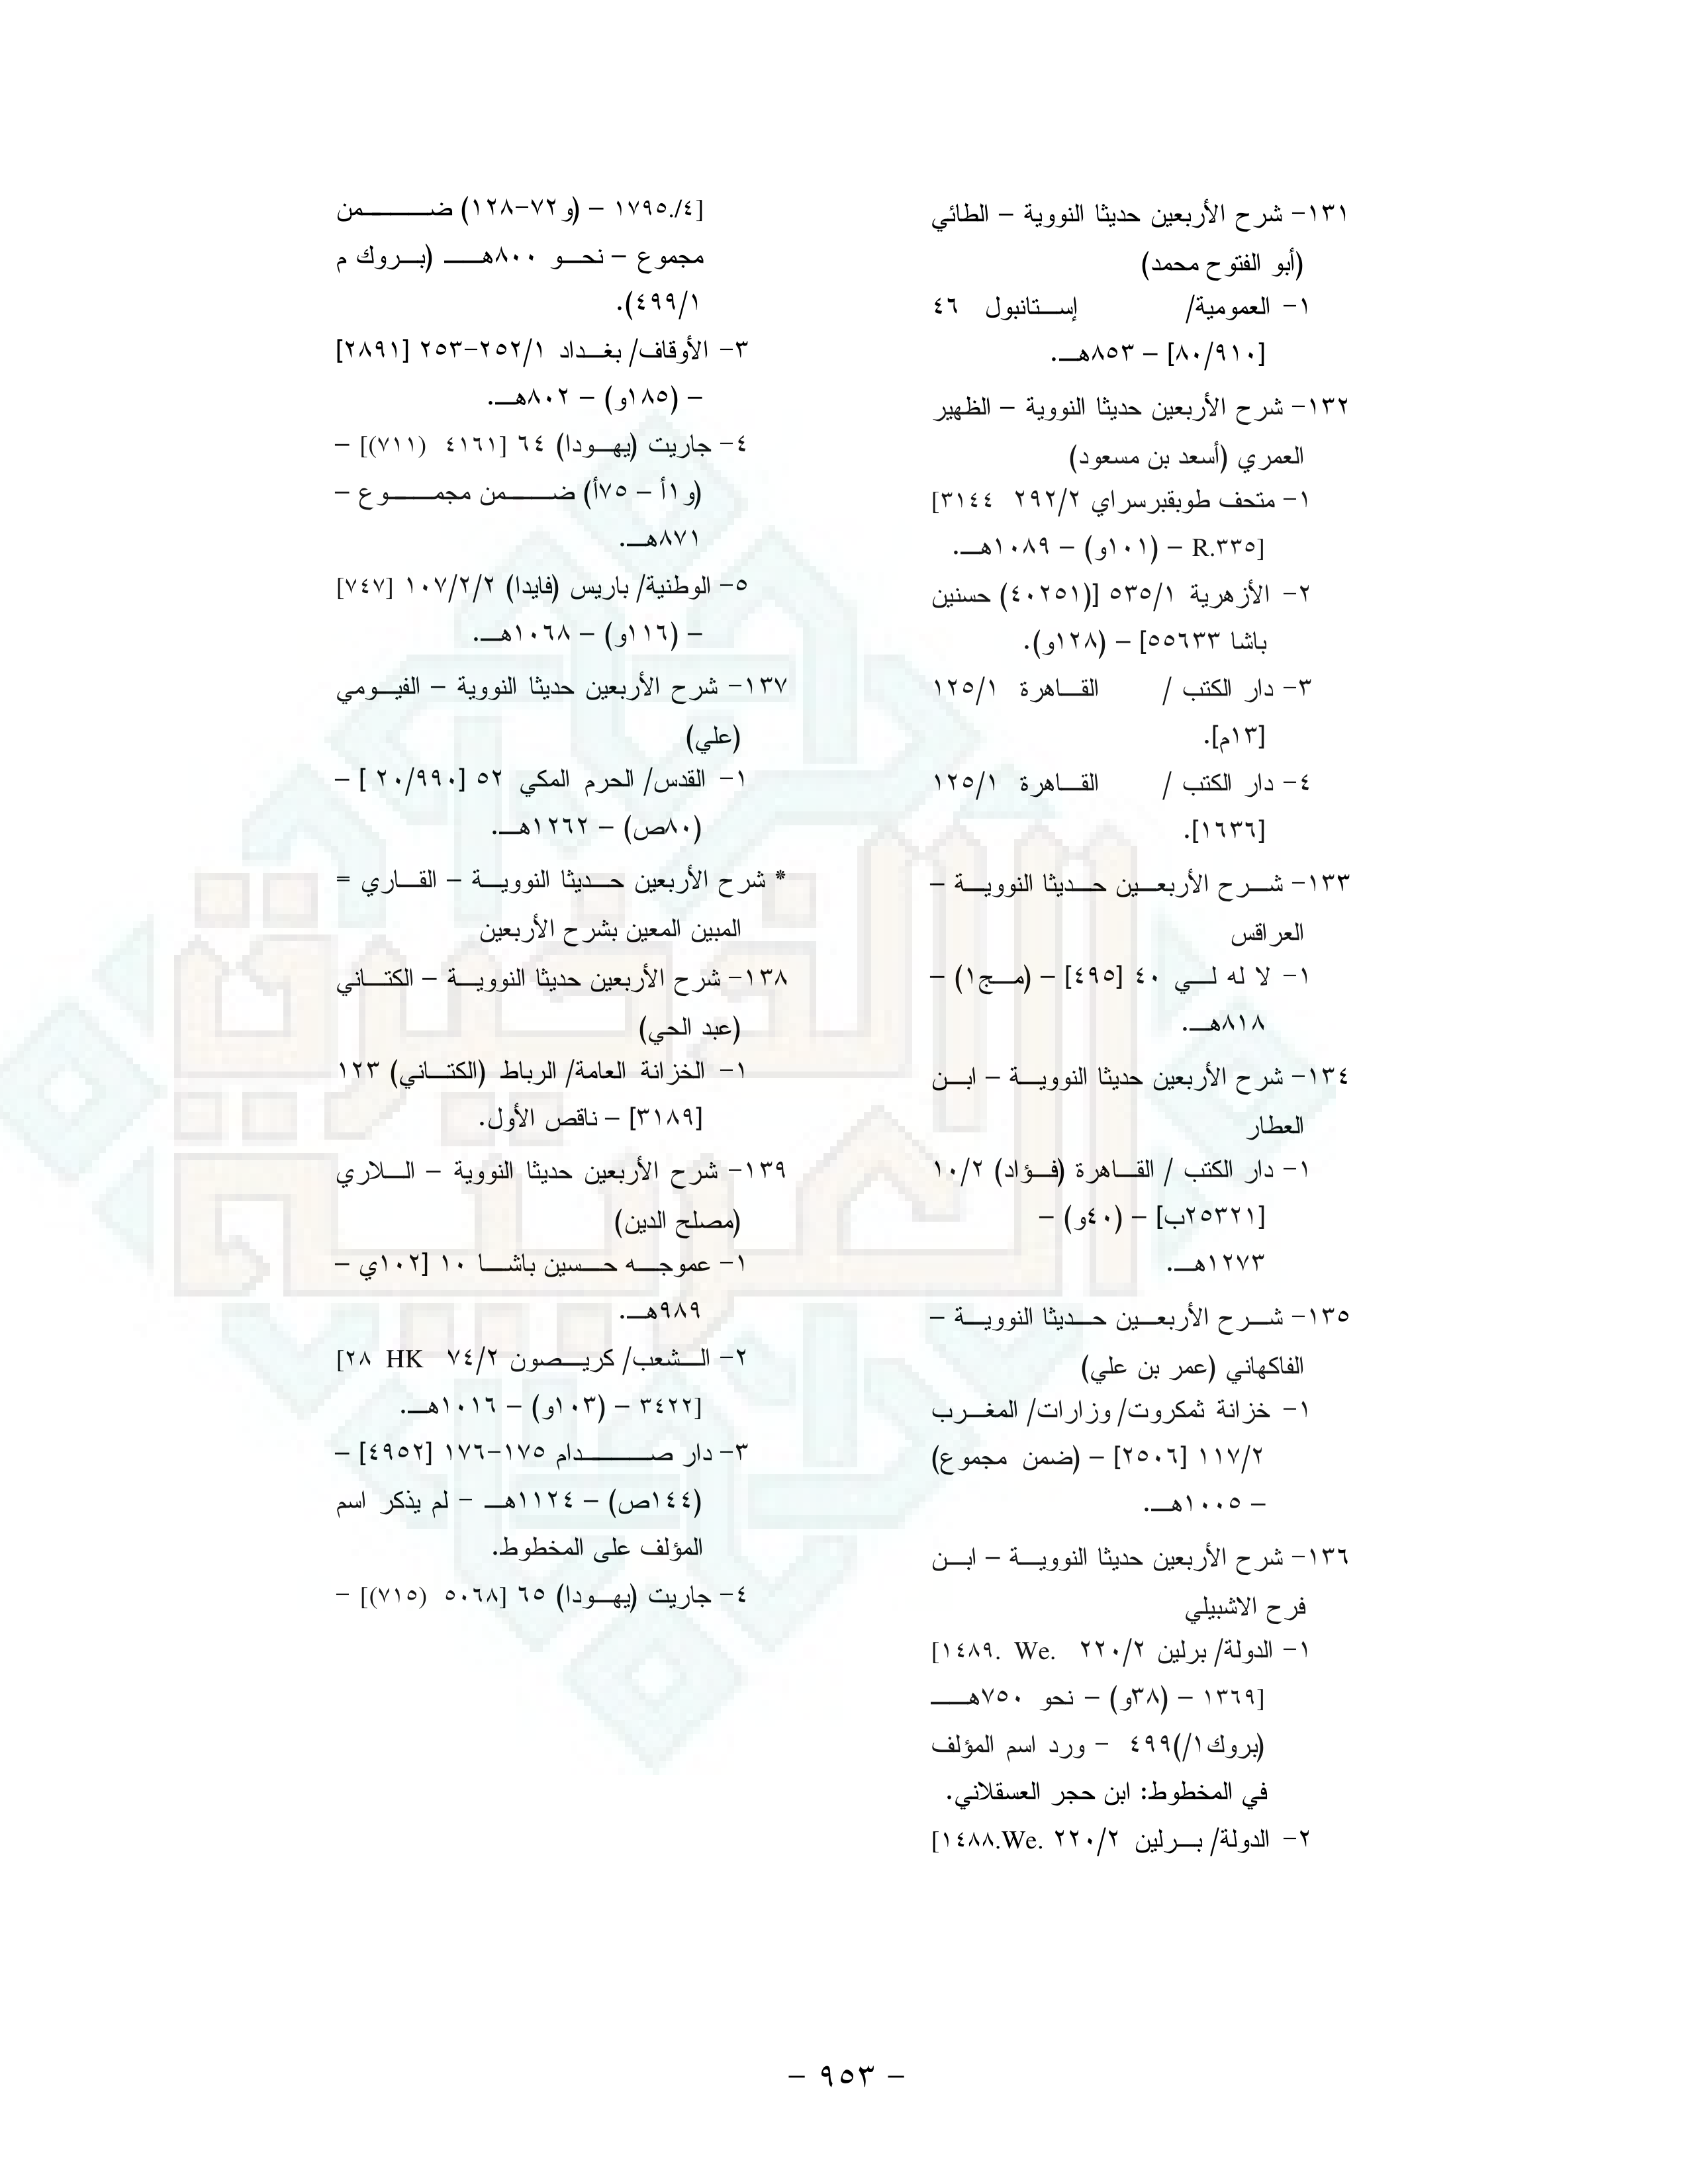 ١٣١- شرح الأربعين حديثا النووية – الطائي
(أبو الفتوح محمد)
١- العمومية/ إستانبول ٤٦
[٨٠/٩١٠] – ٨٥٣هـ.
١٣٢- شرح الأربعين حديثا النووية – الظهير
العمري (أسعد بن مسعود)
١- متحف طوبقبرسراي ٢٩٢/٢ ٣١٤٤]
[R.٣٣٥ – (١٠١و) – ١٠٨٩هـ.
٢- الأزهرية ٥٣٥/١ [(٤٠٢٥١) حسنين
باشا ٥٥٦٣٣] – (١٢٨و).
٣- دار الكتب / القاهرة ١٢٥/١
[١٣م].
٤- دار الكتب / القاهرة ١٢٥/١
[١٦٣٦].
١٣٣- شرح الأربعين حديثا النووية –
العراقس
١- لا له لي ٤٠ [٤٩٥] – (مج١) –
٨١٨هـ.
١٣٤- شرح الأربعين حديثا النووية – ابن
العطار
١- دار الكتب / القاهرة (فؤاد) ١٠/٢
[٢٥٣٢١ب] – (٤٠و) –
١٢٧٣هـ.
١٣٥- شرح الأربعين حديثا النووية –
الفاكهاني (عمر بن علي)
١- خزانة ثمكروت/ وزارات/ المغرب
١١٧/٢ [٢٥٠٦] – (ضمن مجموع)
– ١٠٠٥هـ.
١٣٦- شرح الأربعين حديثا النووية – ابن
فرح الاشبيلي
١- الدولة/ برلين ٢٢٠/٢ We. .١٤٨٩]
[١٣٦٩ – (٣٨و) – نحو ٧٥٠هـ
(بروك١/)٤٩٩ - ورد اسم المؤلف
في المخطوط: ابن حجر العسقلاني.
٢- الدولة/ برلين ٢٢٠/٢ We.١٤٨٨.]
[٤/.١٧٩٥ – (و٧٢-١٢٨) ضمن
مجموع – نحو ٨٠٠هـ (بروك م
٤٩٩/١).
٣- الأوقاف/ بغداد ٢٥٢/١-٢٥٣ [٢٨٩١]
– (١٨٥و) – ٨٠٢هـ.
٤- جاريت (يهودا) ٦٤ [٤١٦١ (٧١١)] –
(و١أ – ٧٥أ) ضمن مجموع –
٨٧١هـ.
٥- الوطنية/ باريس (فايدا) ١٠٧/٢/٢ [٧٤٧]
– (١١٦و) – ١٠٦٨هـ.
١٣٧- شرح الأربعين حديثا النووية – الفيومي
(علي)
١- القدس/ الحرم المكي ٥٢ [٢٠/٩٩٠ ] –
(٨٠ص) – ١٢٦٢هـ.
* شرح الأربعين حديثا النووية – القاري =
المبين المعين بشرح الأربعين
١٣٨- شرح الأربعين حديثا النووية – الكتاني
(عبد الحي)
١- الخزانة العامة/ الرباط (الكتاني) ١٢٣
[٣١٨٩] – ناقص الأول.
١٣٩- شرح الأربعين حديثا النووية – اللاري
(مصلح الدين)
١- عموجه حسين باشا ١٠ [١٠٢ي –
٩٨٩هـ.
٢- الشعب/ كريصون ٧٤/٢ HK ٢٨]
[٣٤٢٢ – (١٠٣و) – ١٠١٦هـ.
٣- دار صدام ١٧٥-١٧٦ [٤٩٥٢] –
(١٤٤ص) – ١١٢٤هـ - لم يذكر اسم
المؤلف على المخطوط.
٤- جاريت (يهودا) ٦٥ [٥٠٦٨ (٧١٥)] -
– ٩٥٣ –